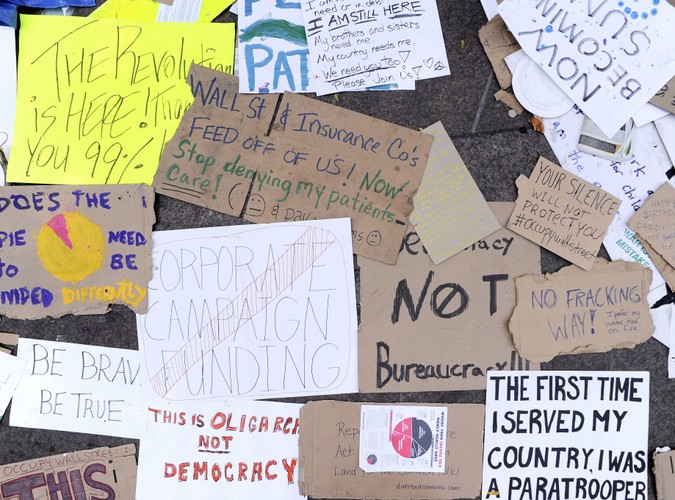 THE Revolution
is HERE! Thank
YOU 99%!
PAT
need or in
I AM STILL HERE
My brothers and sisters
need me
My country needs me.
We need you Too!
Please Join Us!
NOW
BECOMIN
SUN
WALL St & Insurance Co's
FEED OFF OF US! NOW
Stop denying my patients
Care!
YOUR SILENCE
WILL NOT
PROTECT YOU
#OCCUPYWALLSTREET
MISTAKE
DOES THE
PIE NEED
to BE
DIFFERENTLY
CORPORATE
CAMPAIGN
FUNDING
NOT
Bureaucracy!!!
NO FRACKING
WAY! I prefer my
water not
on fire.
BE BRAV
BE TRUE
THIS is OLIGARCH
NOT
DEMOCRACY
Act
distributistreview.com
THE FIRST TIME
I SERVED MY
COUNTRY, I WAS
A PARATROOPER
OCCUPY WALL STREET
THIS